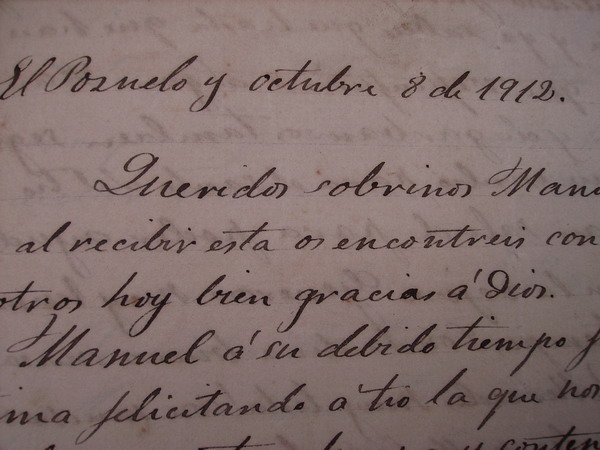 El Pozuelo y octubre 8 de 1912.
Queridos sobrinos Manu
al recibir esta os encontreis con
otros hoy bien gracias á Dios.
Manuel á su debido tiempo
ma felicitando á tio la que nos
y conten